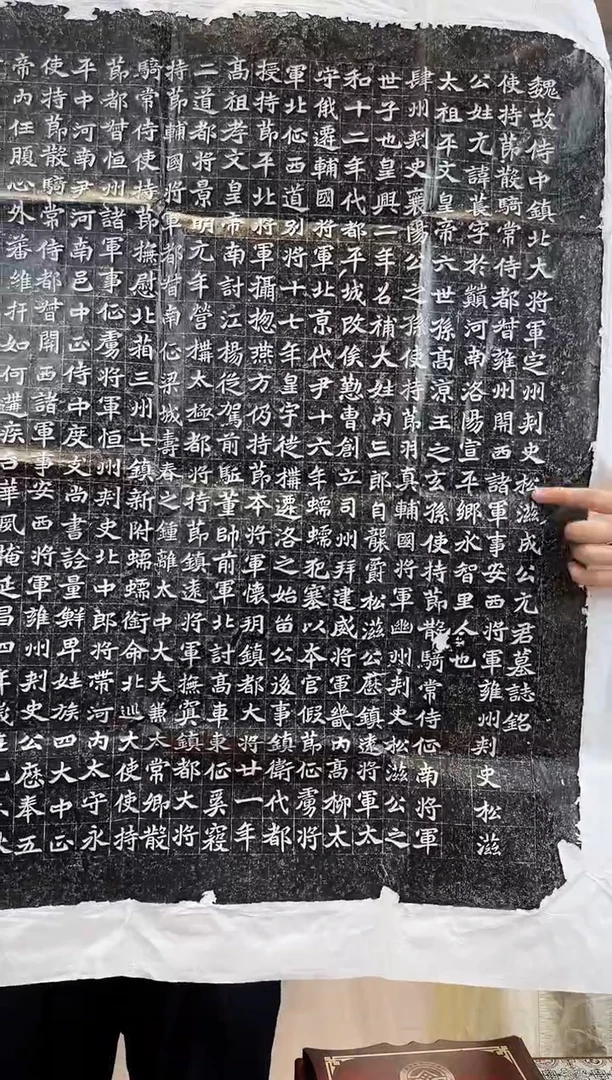 魏故侍中鎮北大將軍定州刾史松滋成公元君墓誌銘
使持莭散騎常侍都督雍州關西諸軍事安西將軍雍州刾史松滋
公姓元諱萇字於巔河南洛陽宣平鄉永智里人也
太祖平文皇帝六世孫高涼王之玄孫使持莭散騎常侍征南將軍
肆州刾史襄陽公之孫使持莭羽真輔國將軍幽州刾史松滋公之
世子也皇興二年名補大姓内三郎自襲爵松滋公歷鎮遠將軍太
和十二年代都平城改俟懃曹創立司州拜建威將軍畿内高柳太
守俄遷輔國將軍北京代尹十六年蠕蠕犯塞以本官假莭征虜將
軍北征西道別將十七年皇宇徙構遷洛之始留公後事鎮衛代都
授持莭平北將軍攝揔燕方仍持莭本將軍懷朔鎮都大將廿一年
高祖孝文皇帝南討江楊從駕前駈董帥前軍北討高車東征奚寇
二道都將景明元年營構太極都將持莭鎮遠將軍撫冥鎮都大將
持莭輔國將軍都督南征梁城壽春之鍾離太中大夫兼太常卿散
騎常侍使持莭撫慰北葙三州七鎮新附蠕蠕銜命北巡大使使持
莭都督恒州諸軍事征虜將軍恒州刾史北中郎將帶河内太守永
平中河南尹河南邑中正侍中度支尚書詮量鮮卑姓族四大中正
使持莭散騎常侍都督關西諸軍事安西將軍雍州刾史公歷奉五
帝内任腹心外蕃維扞如何遘疾台華風掩延昌四年